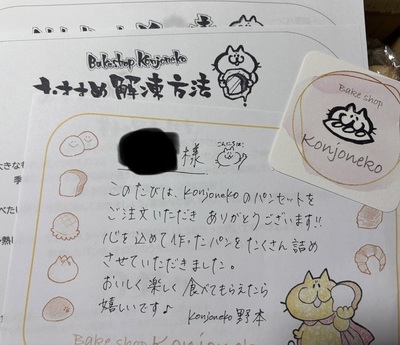 Bakeshop Konjoneko
おすすめ解凍方法
Bake shop
Konjoneko
様
こんにちは
このたびは、Konjonekoのパンセットを
ご注文いただき ありがとうございます!!
心を込めて作ったパンをたくさん詰め
させていただきました。
おいしく楽しく食べてもらえたら
嬉しいです♪
Konjoneko 野本
Bake shop Konjoneko
大きなも
季
べたい
熱